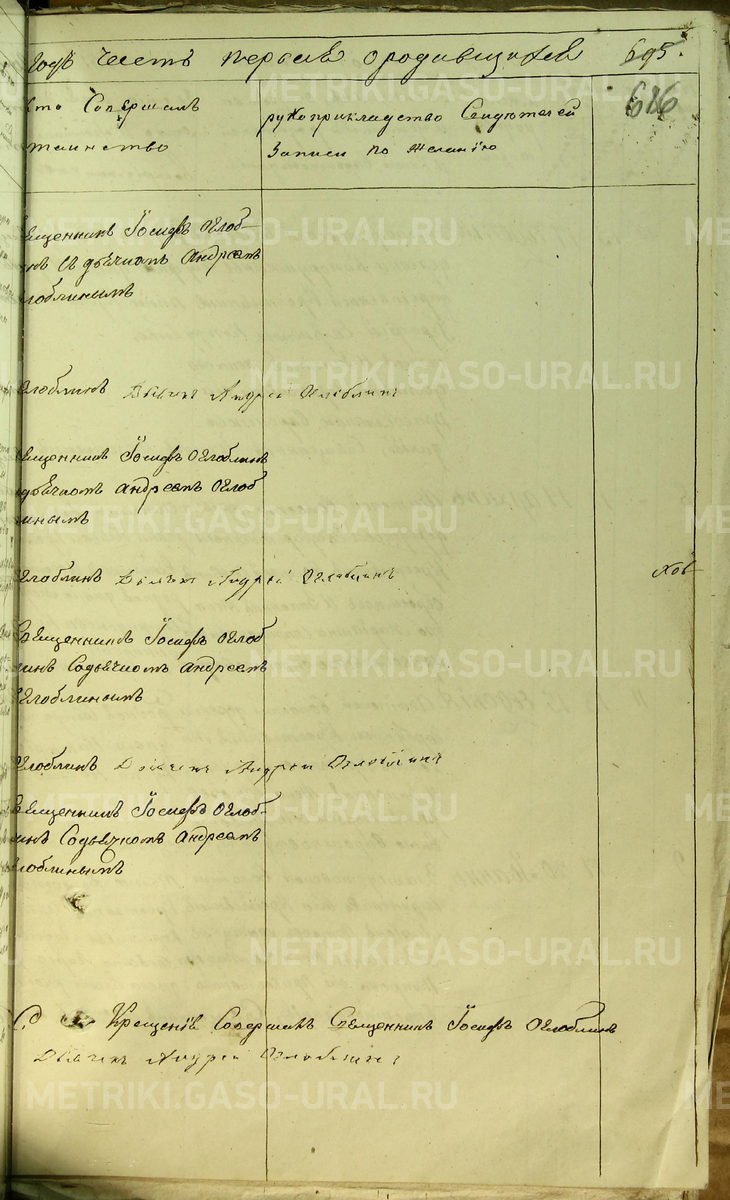 годъ честь первая ородившихся 695.
616
кто Совершалъ
таинство
рукоприкладство Свидѣтелей
Записи по желанію
священникъ Іосифъ Оглоб-
инъ Съ дьячкомъ Андреемъ
глоблинымъ
Оглоблинъ Дьячекъ Андрей Оглоблинъ
Священникъ Іосифъ Оглоблинъ
дьячкомъ Андреемъ Оглоб
инымъ
Оглоблинъ Дьячекъ Андрей Оглоблинъ
Священникъ Іосифъ Оглоб
линъ Содьячкомъ Андреемъ
Оглоблинымъ
Оглоблинъ Дьячекъ Андрей Оглоблинъ
Священникъ Іосифъ Оглоб-
линъ Содьячкомъ Андреемъ
глоблинымъ
Крещеніе Совершалъ Священникъ Іосифъ Оглоблинъ
Дьячекъ Андрей Оглоблинъ
METRIKI.GASO-URAL.RU